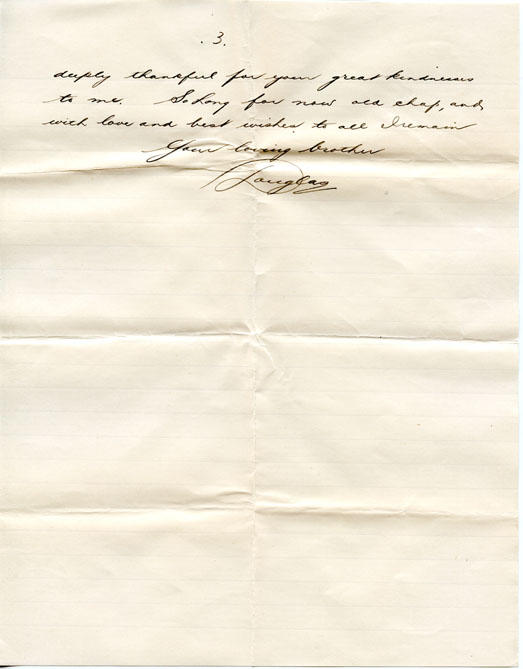 . 3.
deeply thankful for your great kindnesses
to me. So long for now old chap, and
with love and best wishes to all I remain
Your loving brother
Douglas